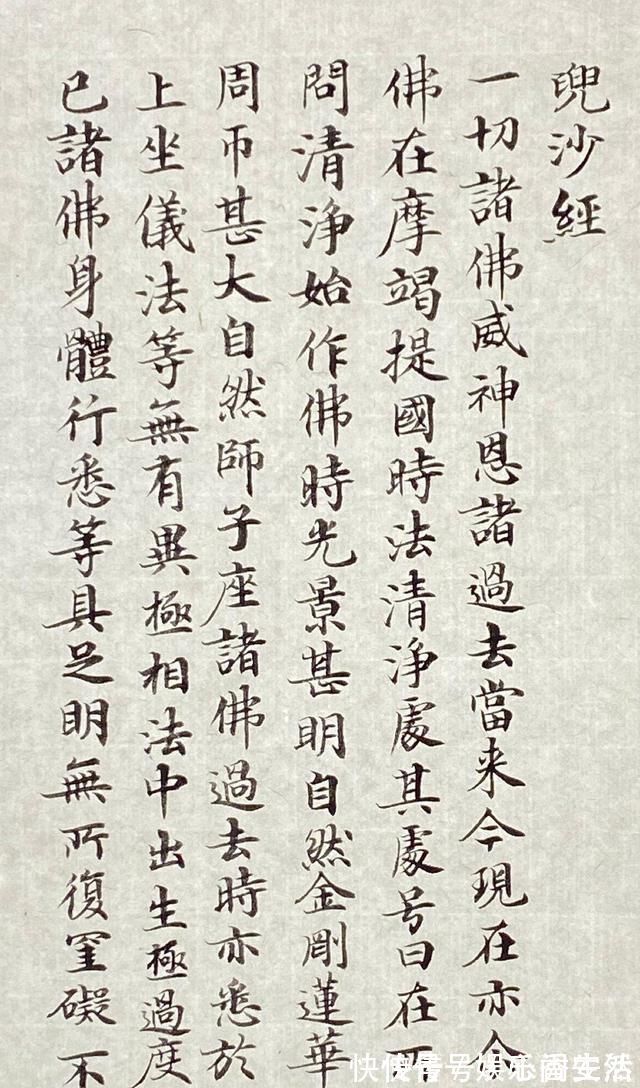 兜沙經
一切諸佛威神恩諸過去當来今現在亦令
佛在摩竭提國時法清淨處其處号曰在
問清淨始作佛時光景甚明自然金剛蓮華
周帀甚大自然師子座諸佛過去時亦悉於
上坐儀法等無有異極相法中出生極過度
已諸佛身體行悉等具足明無所復罣礙不